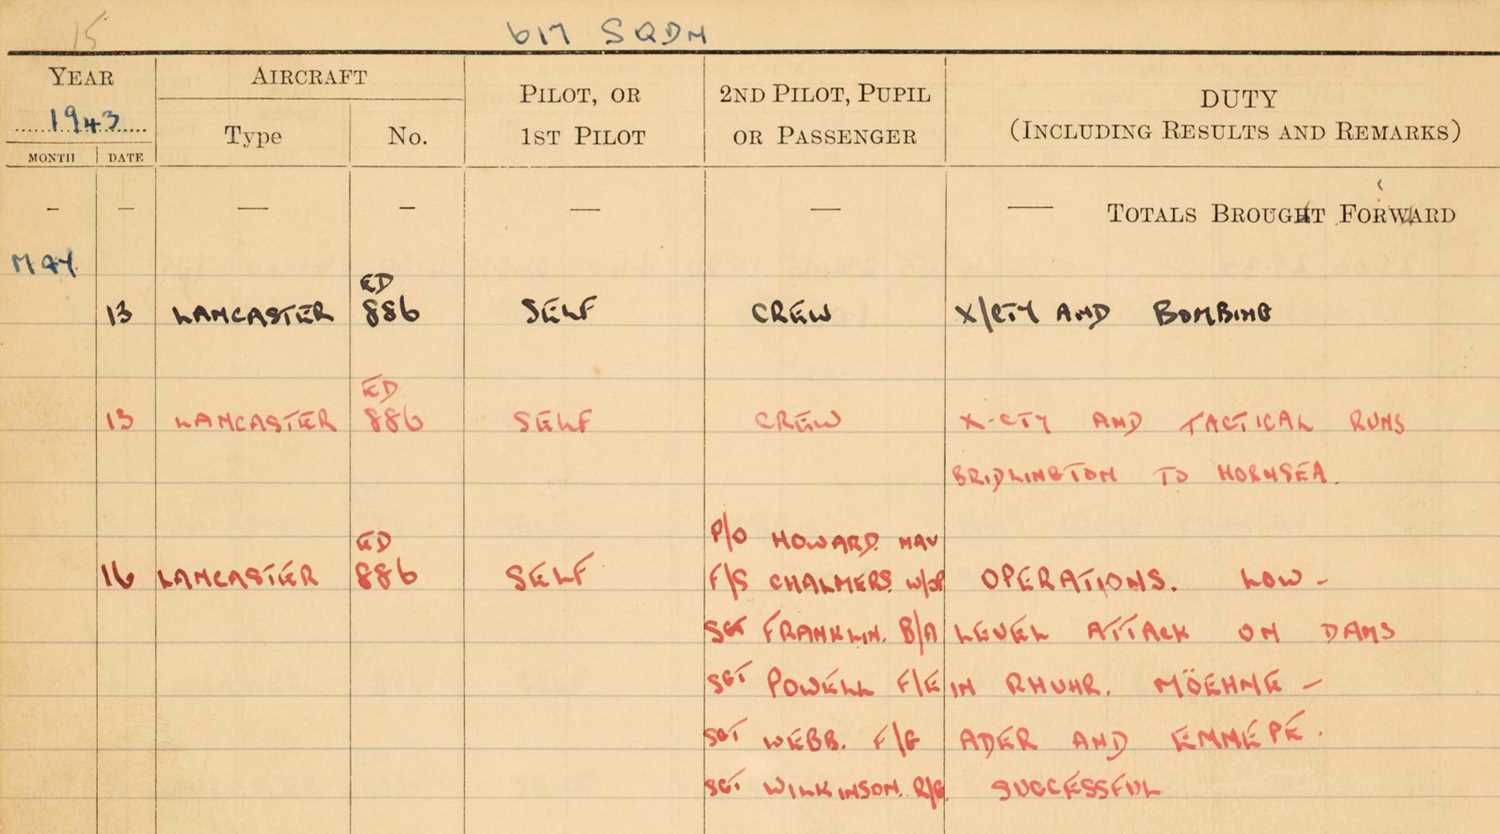 15
617 SQDN
YEAR
1943
MONTH DATE
AIRCRAFT
Type No.
PILOT, OR
1ST PILOT
2ND PILOT, PUPIL
OR PASSENGER
DUTY
(INCLUDING RESULTS AND REMARKS)
— — — — — — — TOTALS BROUGHT FORWARD
MAY
ED
13 LANCASTER 886 SELF CREW X/CTY AND BOMBING
ED
13 LANCASTER 886 SELF CREW X-CTY AND TACTICAL RUNS
BRIDLINGTON TO HORNSEA.
ED P/O HOWARD. NAV
16 LANCASTER 886 SELF F/S CHALMERS. W/OP OPERATIONS. LOW -
SGT FRANKLIN. B/A LEVEL ATTACK ON DAMS
SGT POWELL F/E IN RHUHR. MÖEHNE -
SGT WEBB. F/G ADER AND EMNEPÉ.
SGT WILKINSON. R/G SUCCESSFUL